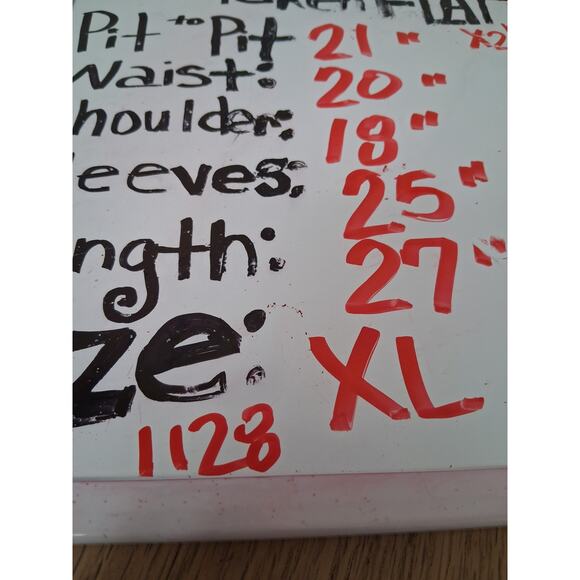 Taken FLAT
Pit to Pit 21" X2
Waist: 20"
houlder: 18"
leeves: 25"
ngth: 27"
ze: XL
1128